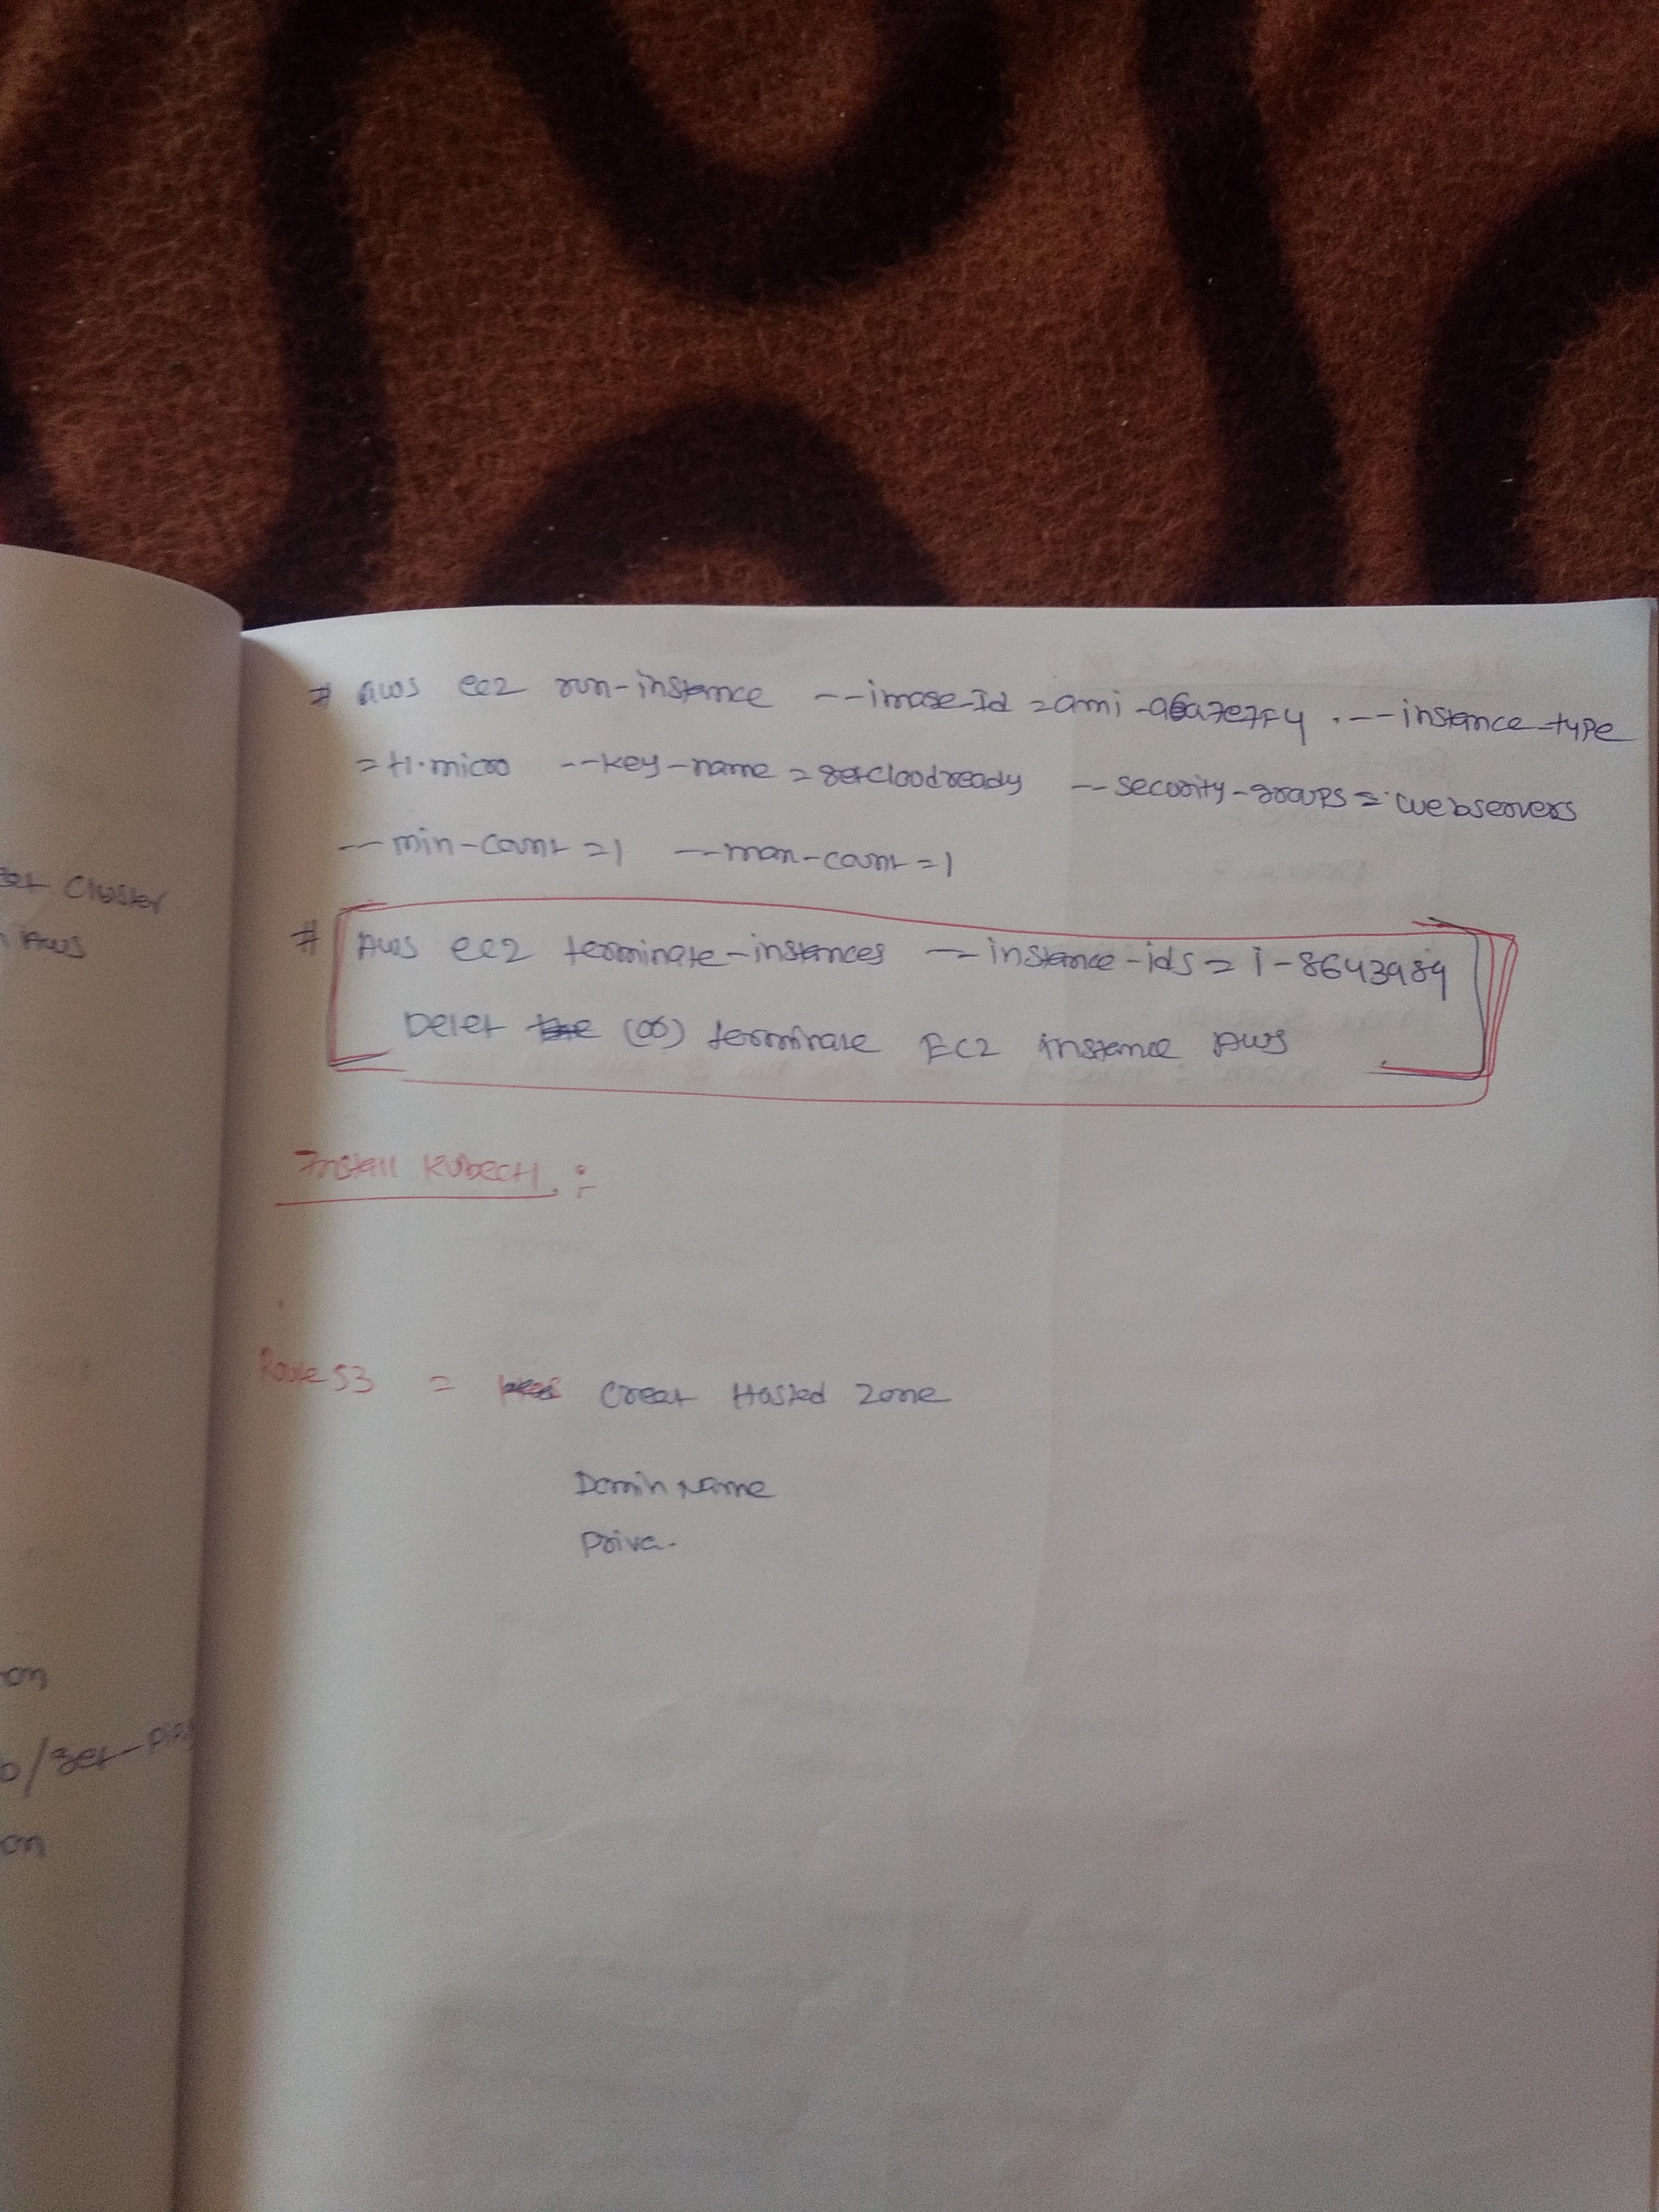 # aws ec2 run-instance --image-Id =ami-a6a7e7F4 . -- instance-type
=t1.micro --key-name = getcloudready -- security-groups = webservers
-- min-count =1 -- max-count =1
# Aws ec2 terminate-instances -- instance-ids = i-8643989
Delet (or) terminate EC2 instance AWS
Install Kubectl :-
Route 53 = Creat Hosted Zone
Domin Name
Priva-
Cluster
AWS
on
/get-pip
on